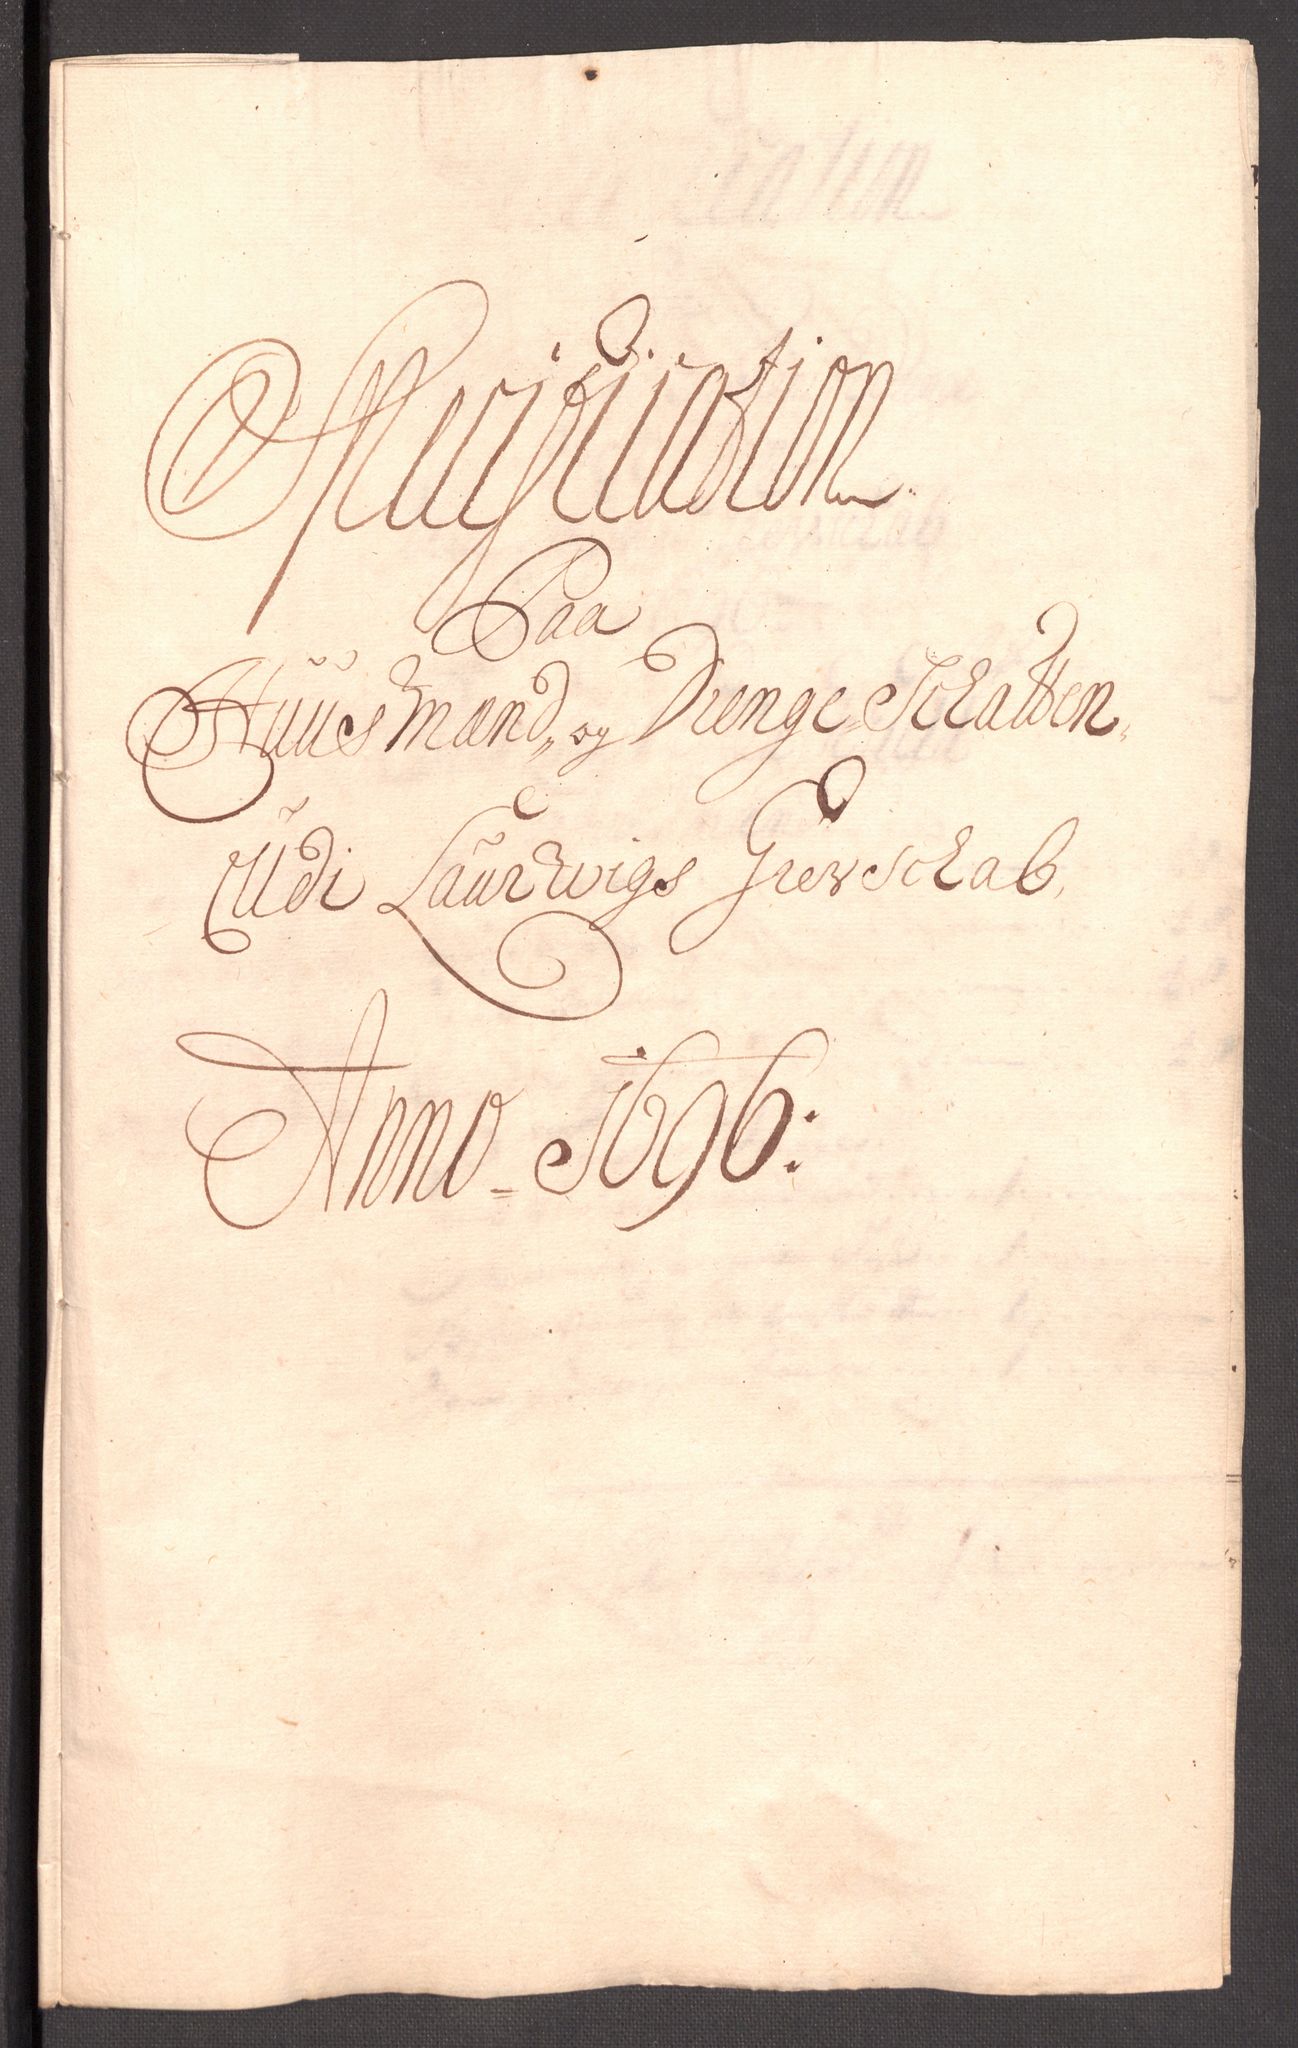 Specification
Paa
Huus Mænd, og Drenge Schatten,
Udi Laurwigs Grevschab,
Anno = 1696: